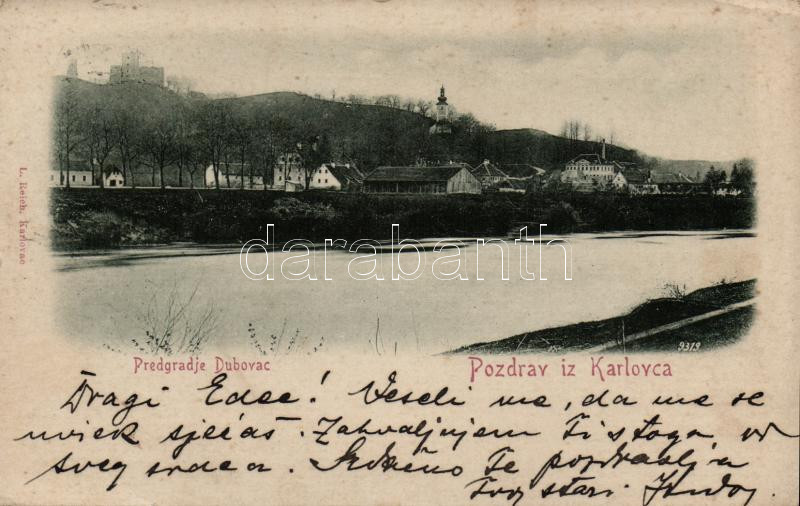 L. Reich, Karlovac
darabanth
9319
Predgradje Dubovac
Pozdrav iz Karlovca
Dragi Edee! Veseli me, da me se
uviek sjećaš. Zahvaljujem Ti stoga od
sveg srdca. Srdačno Te pozdravlja
Tvoj stari